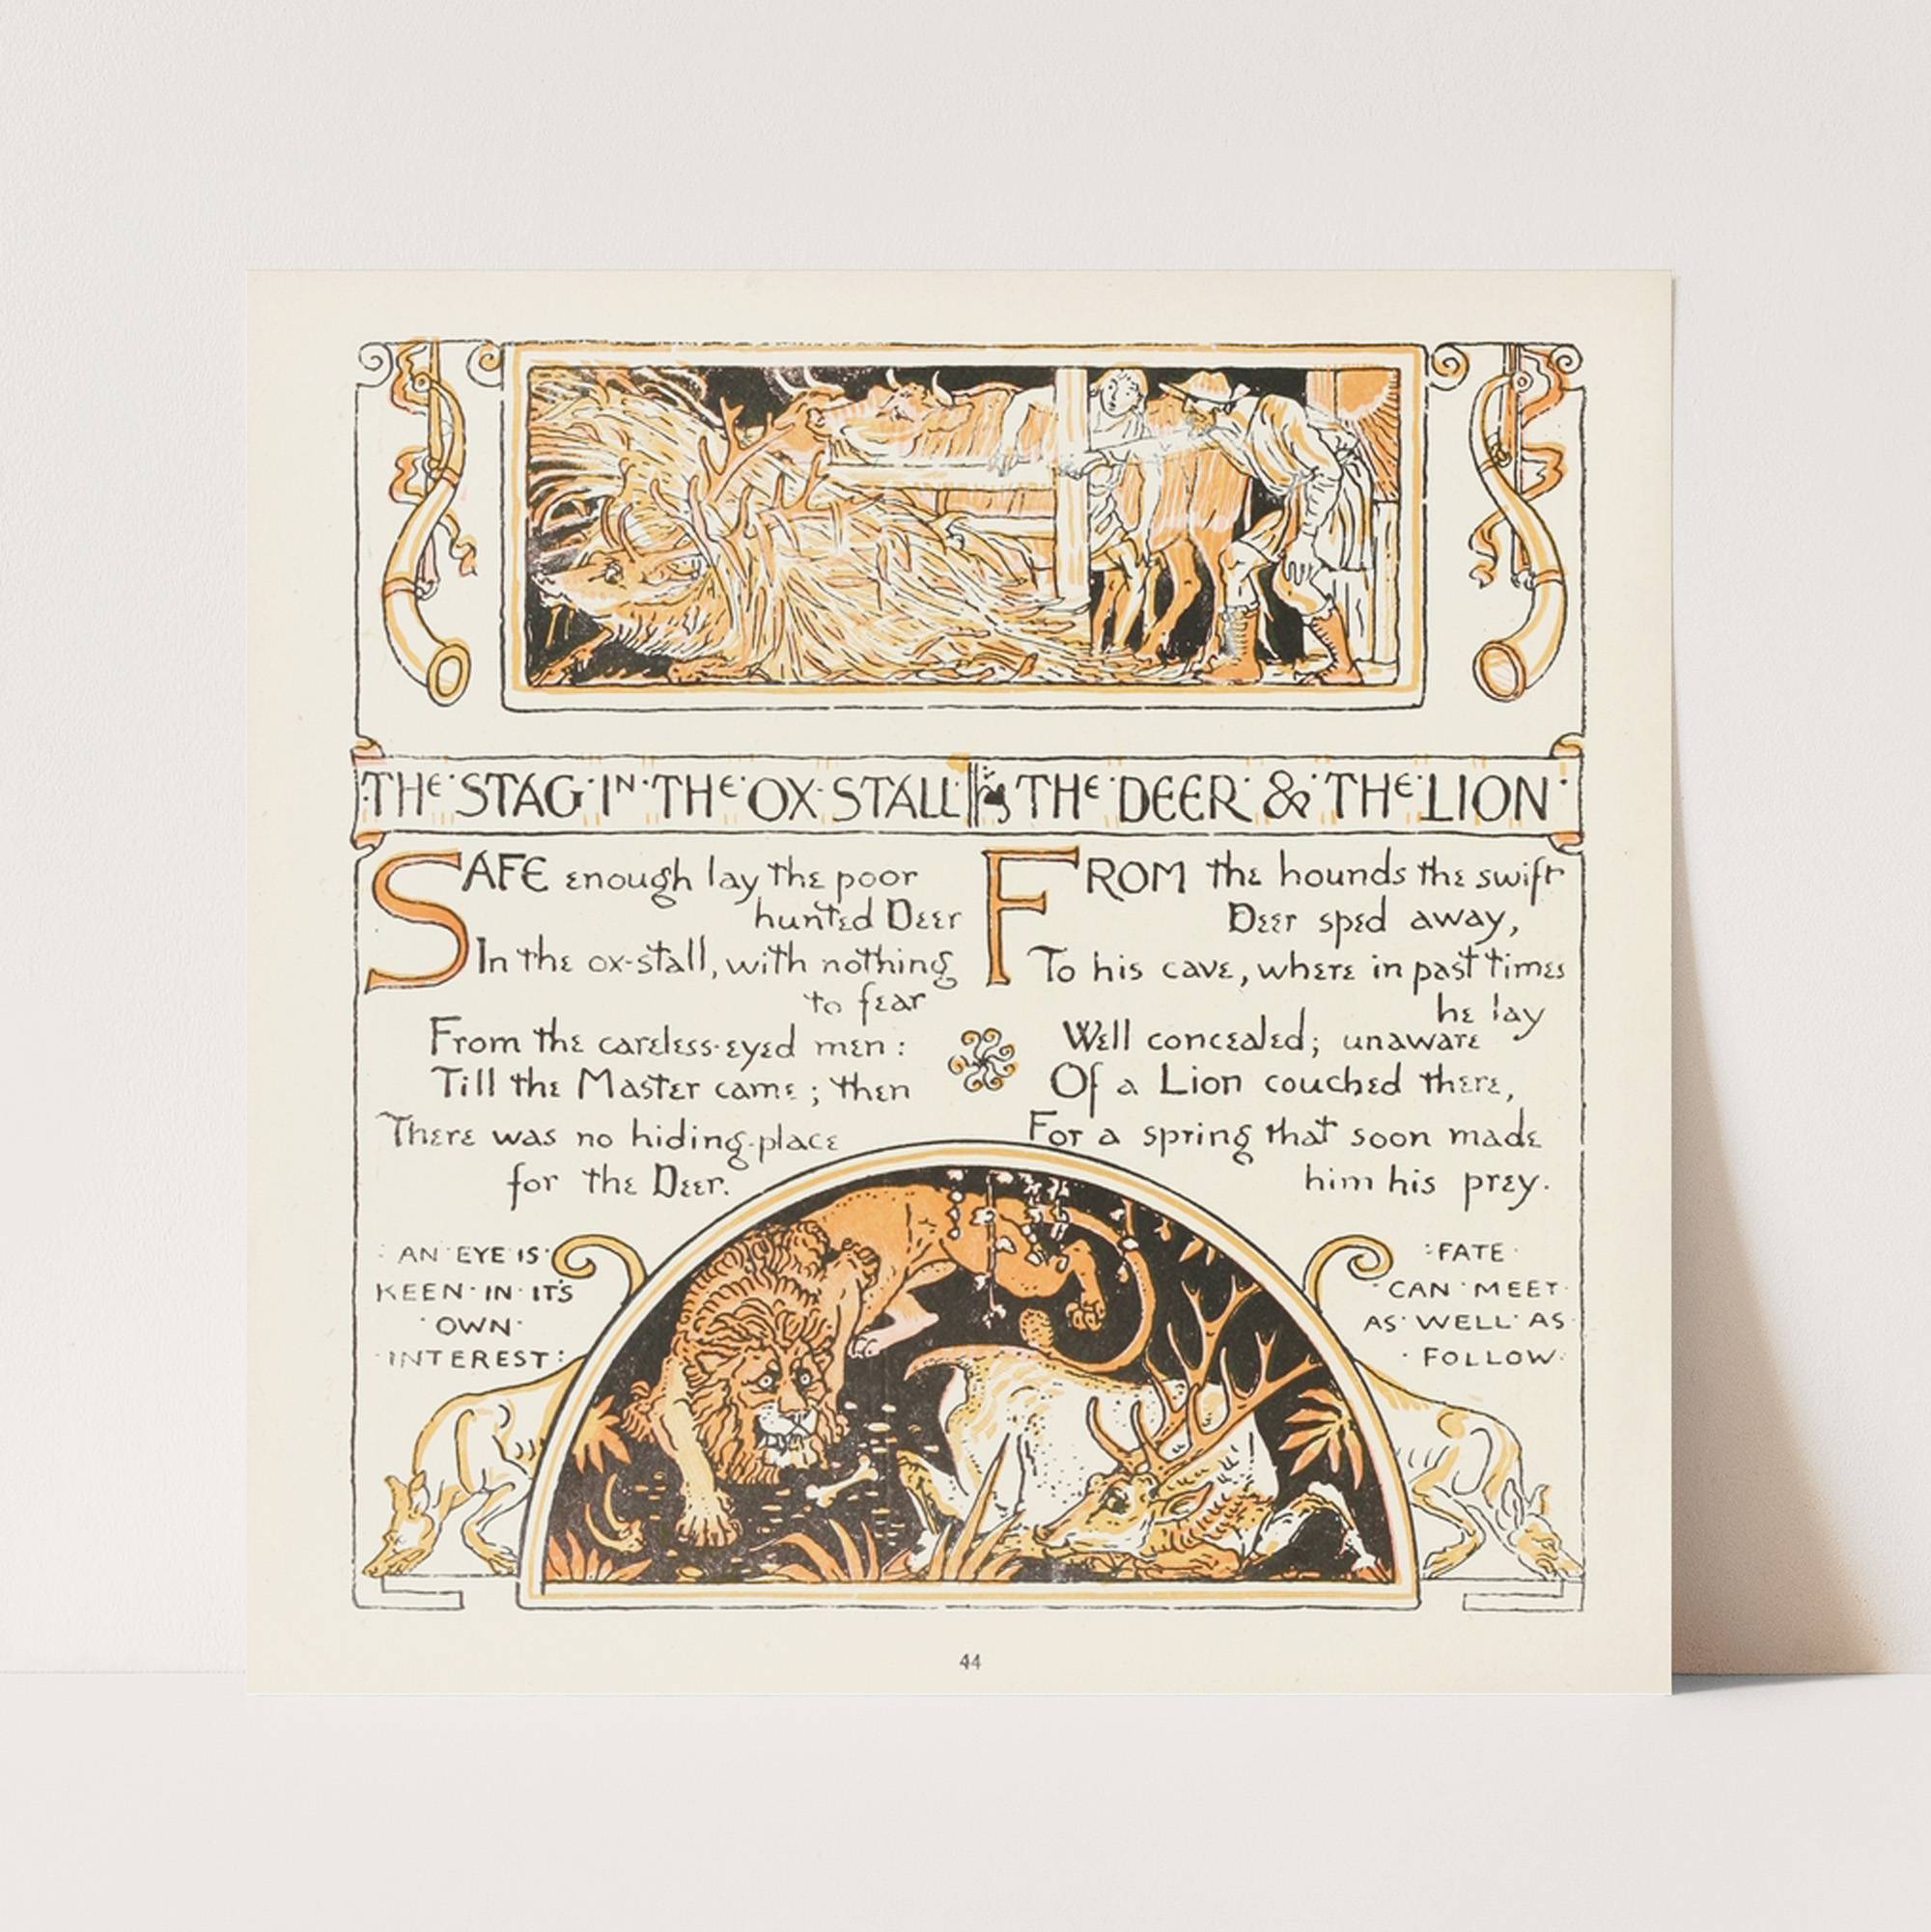 THE STAG IN THE OX STALL
SAFE enough lay the poor
hunted Deer
In the ox-stall, with nothing
to fear
From the careless-eyed men:
Till the Master came; then
There was no hiding-place
for the Deer.
AN EYE IS
KEEN IN IT'S
OWN
INTEREST:
& THE DEER & THE LION
FROM the hounds the swift
Deer sped away,
To his cave, where in past times
he lay
Well concealed; unaware
Of a Lion couched there,
For a spring that soon made
him his prey.
FATE
CAN MEET
AS WELL AS
FOLLOW.
44